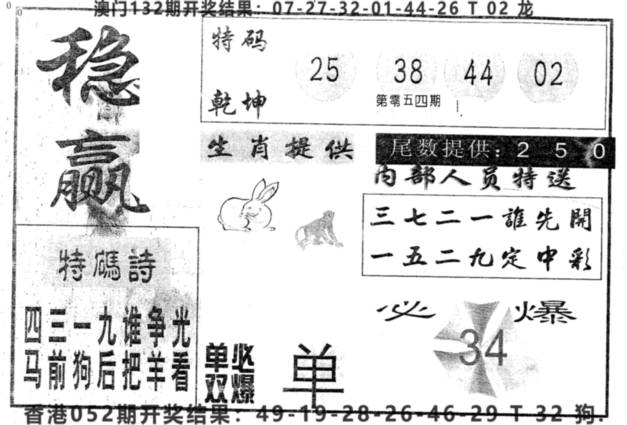 澳门132期开奖结果：07-27-32-01-44-26 T 02 龙
稳赢
特码
乾坤
25 38 44 02
第零五四期
生肖提供
尾数提供：2 5 0
内部人员特送
三七二一誰先開
一五二九定中彩
特碼詩
四三一九谁争光
马前狗后把羊看
必爆
34
单双必爆
单
香港052期开奖结果：49-19-28-26-46-29 T 32 狗.